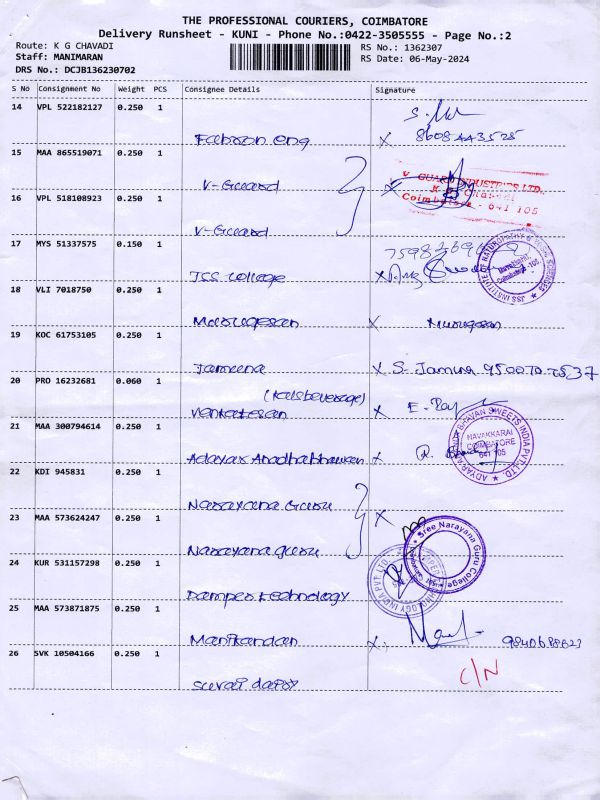 THE PROFESSIONAL COURIERS, COIMBATORE
Delivery Runsheet - KUNI - Phone No.:0422-3505555 - Page No.:2
Route: K G CHAVADI
RS No.: 1362307
Staff: MANIMARAN
RS Date: 06-May-2024
DRS No.: DCJB136230702
S No Consignment No Weight PCS Consignee Details Signature
14 VPL 522182127 0.250 1
Fabson eng
15 MAA 865519071 0.250 1
V-Guard
V GUARD INDUSTRIES LTD.
Coimbatore - 641 105
16 VPL 518108923 0.250 1
V-Guard
17 MYS 51337575 0.150 1
JSS college
JSS INSTITUTE OF NATUROPATHY & YOGIC SCIENCES
Coimbatore-105
18 VLI 7018750 0.250 1
Mourugesan X Murugesan
19 KOC 61753105 0.250 1
Jameena X S. Jamina
20 PRO 16232681 0.060 1
Venkatesan X E. Raj
21 MAA 300794614 0.250 1
Adayar Anadhabhavan X
ADYAR ANANDA BHAVAN SWEETS INDIA PVT.LTD.
NAVAKKARAI
COIMBATORE
641 105
22 KDI 945831 0.250 1
Narayana Guru
23 MAA 573624247 0.250 1
Narayana guru X
Sree Narayana Guru College
24 KUR 531157298 0.250 1
technology
TECHNOLOGY INDIA PVT LTD
25 MAA 573871875 0.250 1
Manikandan X
26 SVK 10504166 0.250 1
C/N